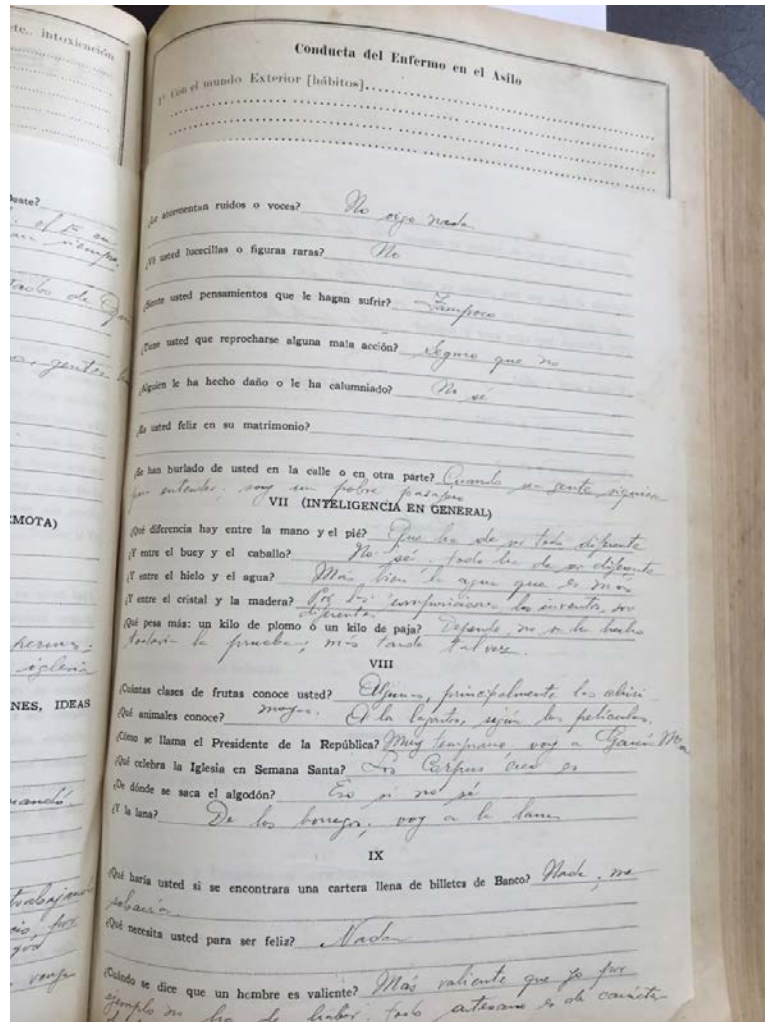 etc., intoxicación
Conducta del Enfermo en el Asilo
1º Con el mundo Exterior [hábitos]
¿Le atormentan ruidos o voces? No oigo nada
¿Vé usted lucecillas o figuras raras? No
¿Siente usted pensamientos que le hagan sufrir? Tampoco
¿Tiene usted que reprocharse alguna mala acción? Seguro que no
¿Alguien le ha hecho daño o le ha calumniado? No sé
¿Es usted feliz en su matrimonio?
¿Se han burlado de usted en la calle o en otra parte? Cuando sea gente
para entender; soy un pobre pasajero
VII (INTELIGENCIA EN GENERAL)
¿Qué diferencia hay entre la mano y el pié? Que ha de ser todo diferente
¿Y entre el buey y el caballo? No sé todo ha de ser diferente
¿Y entre el hielo y el agua? Más bien la agua que es más
¿Y entre el cristal y la madera? Por las composiciones los inventos, son
diferentes
¿Qué pesa más: un kilo de plomo ó un kilo de paja? Depende, no se ha hecho
todavía la prueba; más tarde tal vez.
VIII
¿Cuántas clases de frutas conoce usted? Algunas, principalmente las chiri-
moyas.
¿Qué animales conoce? A la lagartos, según las películas.
¿Cómo se llama el Presidente de la República? Muy temprano voy a García
¿Qué celebra la Iglesia en Semana Santa? Los Corpus creo es
¿De dónde se saca el algodón? Eso si no sé
¿Y la lana? De los borregos; voy a la lana
IX
¿Qué haría usted si se encontrara una cartera llena de billetes de Banco? Nada; me
¿Qué necesita usted para ser feliz? Nada
¿Cuándo se dice que un hombre es valiente? Más valiente que yo por
ejemplo no ha de haber; todo artesano es de carácter
EMOTA)
iglesia
NES, IDEAS